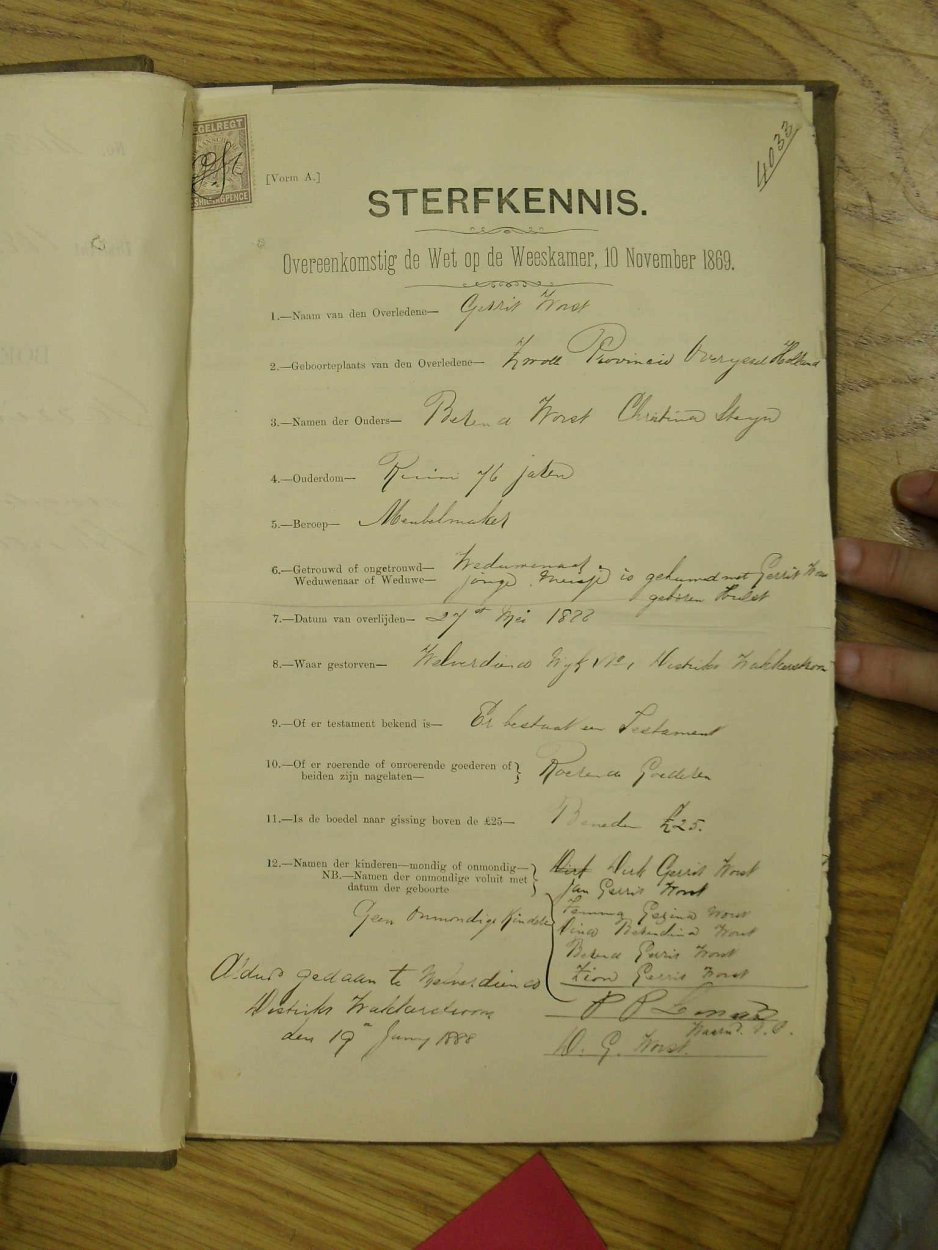 ZEGELREGT
4033
[Vorm A.]
STERFKENNIS.
Overeenkomstig de Wet op de Weeskamer, 10 November 1869.
1.—Naam van den Overledene— Gerrit Worst
2.—Geboorteplaats van den Overledene— Zwolle Provincie Overyssel Holland
3.—Namen der Ouders— Berend Worst Christina Steyn
4.—Ouderdom— Ruim 76 jaren
5.—Beroep— Meubelmaker
6.—Getrouwd of ongetrouwd— Weduwenaar
Weduwenaar of Weduwe— is gehuwd met Gerrit
geboren Hulst
7.—Datum van overlijden— 27st Mei 1888
8.—Waar gestorven— Welverdiend Wyk No 1 Distrikt Wakkerstroom
9.—Of er testament bekend is— Er bestaat een Testament
10.—Of er roerende of onroerende goederen of
beiden zijn nagelaten— Roerende Goederen
11.—Is de boedel naar gissing boven de £25— Beneden £25.
12.—Namen der kinderen—mondig of onmondig— Dirk Gerrit Worst
NB.—Namen der onmondige voluit met
datum der geboorte
Jan Gerrit Worst
Geen Onmondige Kinders
Femma Gezina Worst
Dina Berendina Worst
Berend Gerrit Worst
Gerrit Worst
Aldus gedaan te Welverdiend
Distrikt Wakkerstroom
den 19n Juny 1888
D. G. Worst